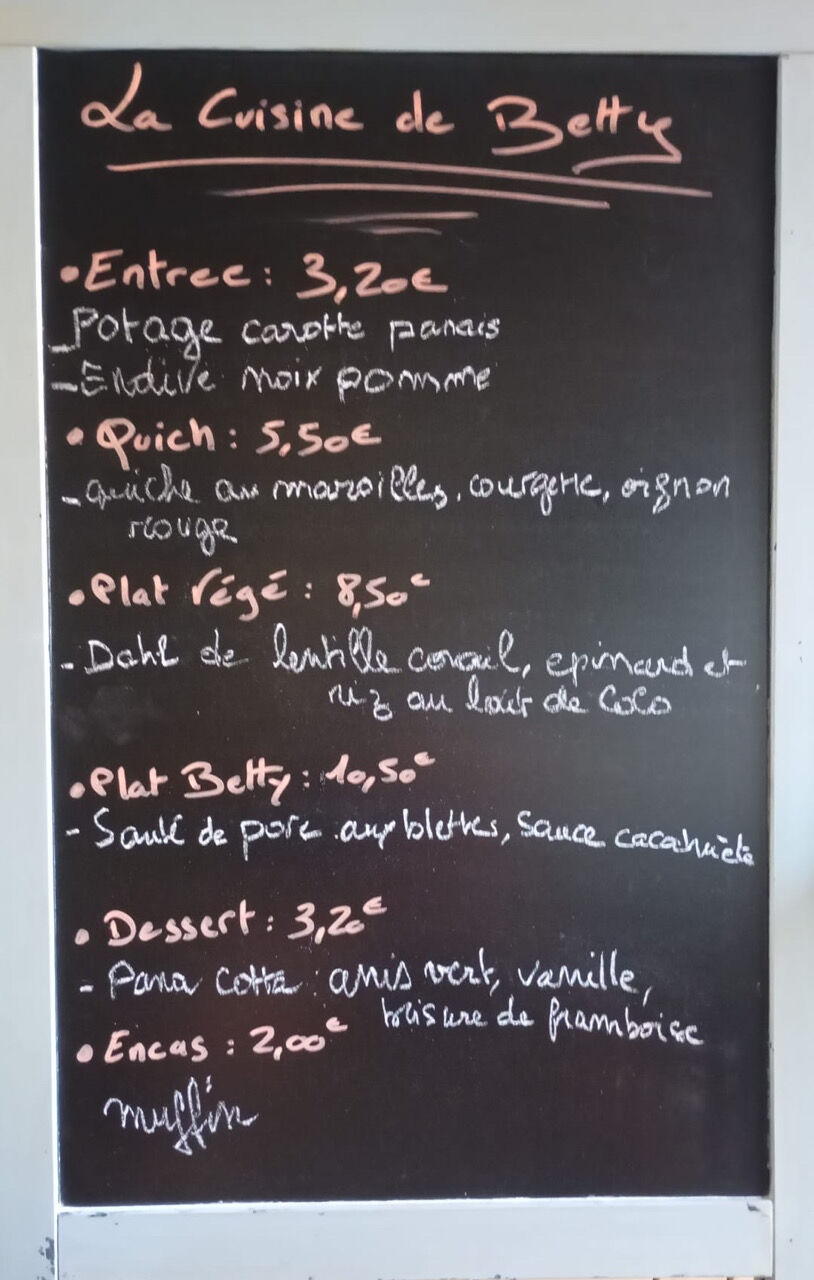 La Cuisine de Betty
• Entree : 3,20€
- Potage carotte panais
- Endive noix pomme
• Quich : 5,50€
- quiche au maroilles, courgette, oignon
rouge
• Plat végé : 8,50€
- Dahl de lentille corail, epinard et
riz au lait de coco
• Plat Betty : 10,50€
- Sauté de porc aux blettes, sauce cacahuète
• Dessert : 3,20€
- Pana cotta : anis vert, vanille,
brisure de framboise
• Encas : 2,00€
muffin